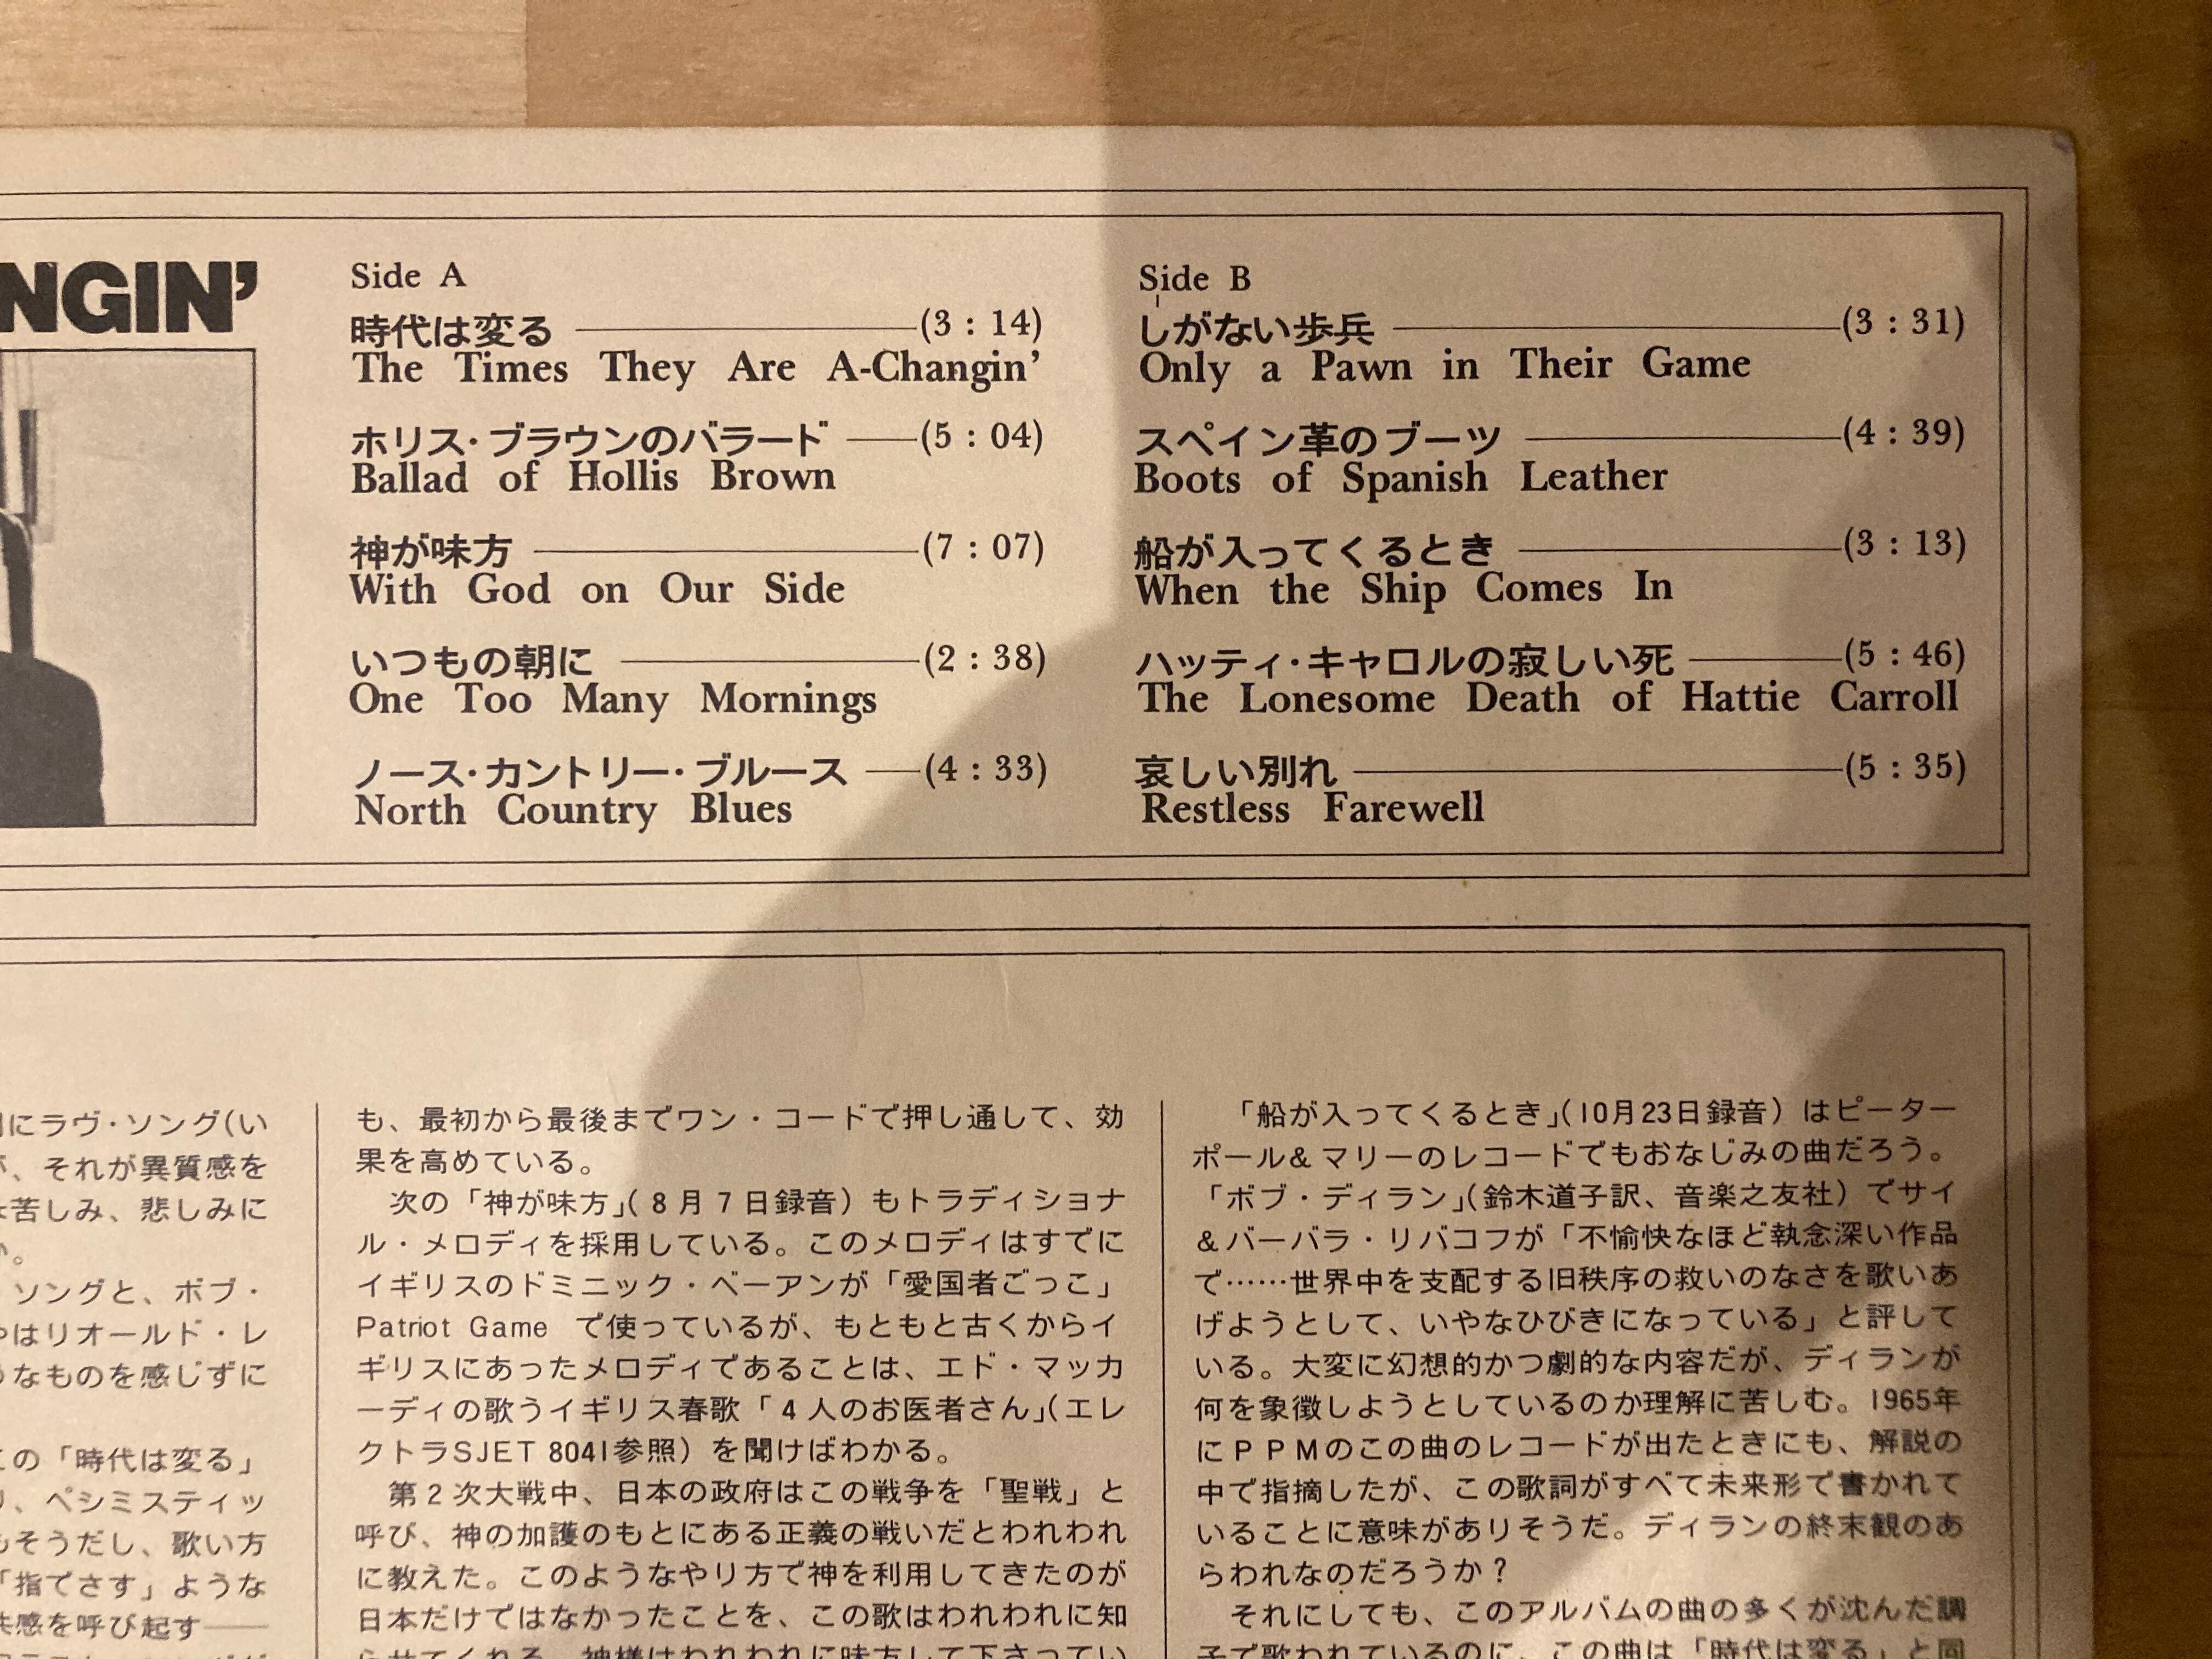 NGIN’
Side A
時代は変る (3 : 14)
The Times They Are A-Changin’
ホリス・ブラウンのバラード (5 : 04)
Ballad of Hollis Brown
神が味方 (7 : 07)
With God on Our Side
いつもの朝に (2 : 38)
One Too Many Mornings
ノース・カントリー・ブルース (4 : 33)
North Country Blues
Side B
しがない歩兵 (3 : 31)
Only a Pawn in Their Game
スペイン革のブーツ (4 : 39)
Boots of Spanish Leather
船が入ってくるとき (3 : 13)
When the Ship Comes In
ハッティ・キャロルの寂しい死 (5 : 46)
The Lonesome Death of Hattie Carroll
哀しい別れ (5 : 35)
Restless Farewell
にラヴ・ソング(い
、それが異質感を
苦しみ、悲しみに
。
ソングと、ボブ・
はリオールド・レ
なものを感じずに
の「時代は変る」
、ペシミスティッ
そうだし、歌い方
「指でさす」ような
感を呼び起す――
も、最初から最後までワン・コードで押し通して、効
果を高めている。
次の「神が味方」(8月7日録音）もトラディショナ
ル・メロディを採用している。このメロディはすでに
イギリスのドミニック・ベーアンが「愛国者ごっこ」
Patriot Game で使っているが、もともと古くからイ
ギリスにあったメロディであることは、エド・マッカ
ーディの歌うイギリス春歌「4人のお医者さん」(エレ
クトラSJET 8041参照）を聞けばわかる。
第2次大戦中、日本の政府はこの戦争を「聖戦」と
呼び、神の加護のもとにある正義の戦いだとわれわれ
に教えた。このようなやり方で神を利用してきたのが
日本だけではなかったことを、この歌はわれわれに知
らせてくれる。神様はわれわれに味方して下さってい
「船が入ってくるとき」(10月23日録音）はピーター
ポール&マリーのレコードでもおなじみの曲だろう。
「ボブ・ディラン」(鈴木道子訳、音楽之友社）でサイ
&バーバラ・リバコフが「不愉快なほど執念深い作品
で……世界中を支配する旧秩序の救いのなさを歌いあ
げようとして、いやなひびきになっている」と評して
いる。大変に幻想的かつ劇的な内容だが、ディランが
何を象徴しようとしているのか理解に苦しむ。1965年
にPPMのこの曲のレコードが出たときにも、解説の
中で指摘したが、この歌詞がすべて未来形で書かれて
いることに意味がありそうだ。ディランの終末観のあ
らわれなのだろうか？
それにしても、このアルバムの曲の多くが沈んだ調
子で歌われているのに、この曲は「時代は変る」と同